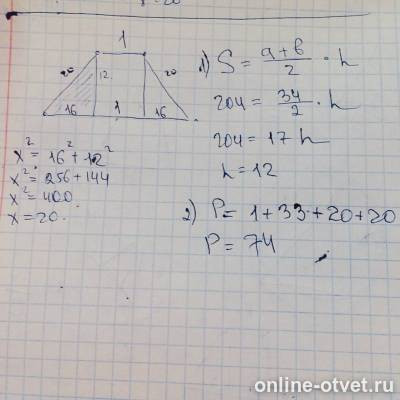 1
20 12 20
16 1 16
x² = 16² + 12²
x² = 256 + 144
x² = 400
x = 20.
1) S = \frac{a+b}{2} · h
204 = \frac{34}{2} · h
204 = 17 h
h = 12
2) P = 1 + 33 + 20 + 20
P = 74
online-otvet.ru